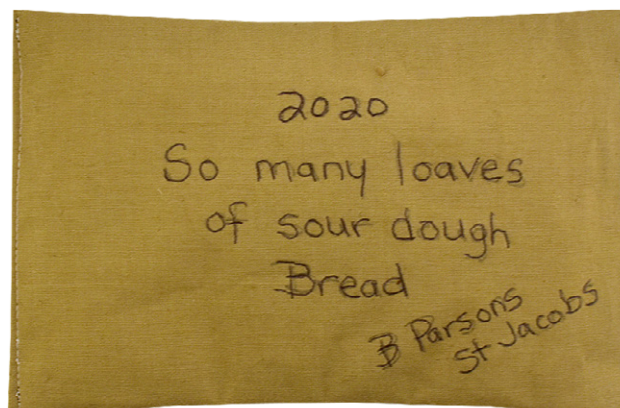 2020
So many loaves
of sour dough
Bread
B Parsons
St Jacobs